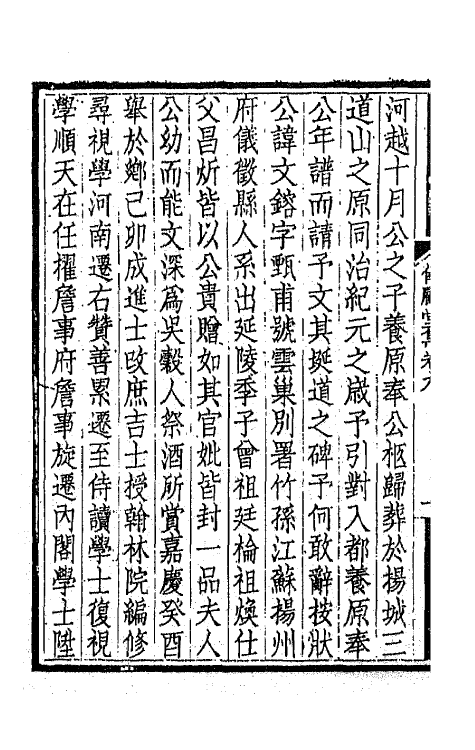 河越十月公之子養原奉公柩歸葬於楊城三
道山之原同治紀元之歲予引對入都養原奉
公年譜而請予文其挻道之碑予何敢辭桉狀
公諱文鎔字甄甫號雲巢別署竹孫江蘇楊州
府儀徵縣人系出延陵季子曾祖廷棆祖煥仕
父昌炘皆以公貴贈如其官妣皆封一品夫人
公幼而能文深爲吳糓人祭酒所賞嘉慶癸酉
舉於鄉己卯成進士改庶吉士授翰林院編修
尋視學河南遷右贊善累遷至侍讀學士復視
學順天在任擢詹事府詹事旋遷內閣學士陞